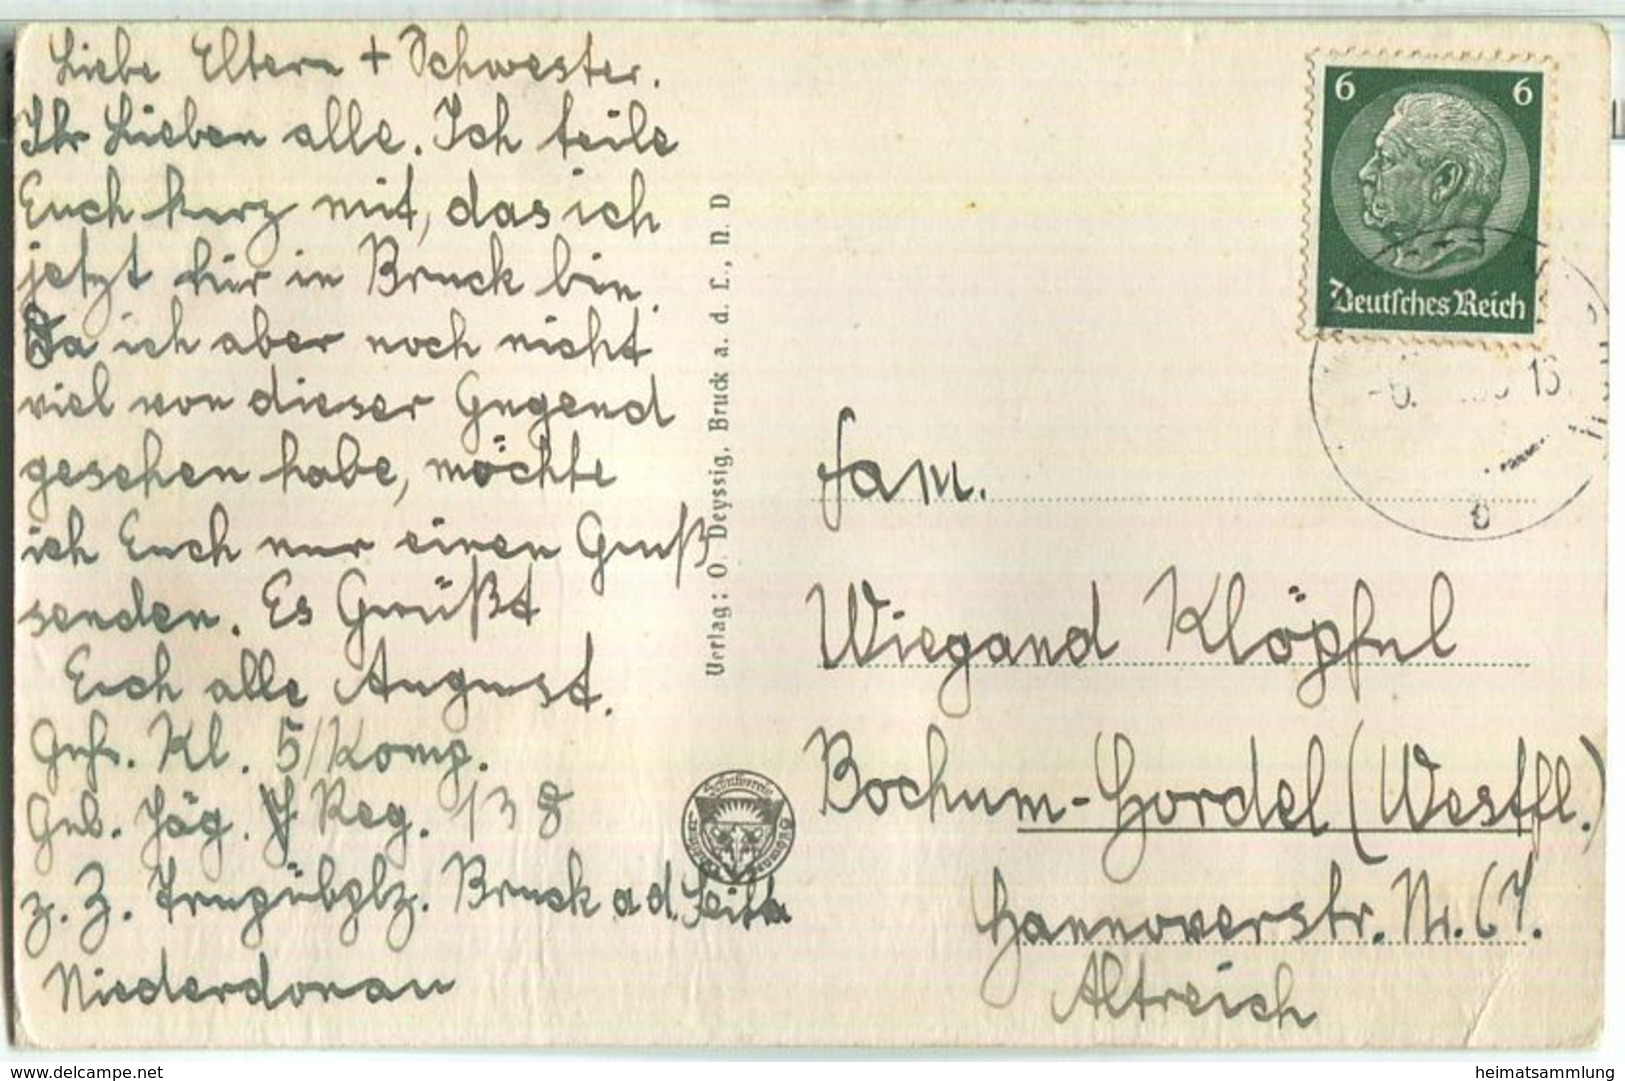 Liebe Eltern + Schwester.
Ihr Lieben alle. Ich teile
Euch kurz mit, das ich
jetzt hir in Bruck bin.
Da ich aber noch nicht
viel von dieser Gegend
gesehen habe, möchte
ich Euch nur einen Gruß
senden. Es Grüßt
Euch alle August.
Gefr. Kl. 5/Komp.
Geb. Jäg. Reg. 138
z. Z. Trupübplz. Bruck a d. Leitha
Niederdonau
Verlag: O. Deyssig, Bruck a. d. L., N. D
6 6
Deutsches Reich
Fam.
Wiegand Klöpfel
Bochum-Hordel (Westfl.)
Hannoverstr. Nr. 67.
Altreich
delcampe.net
heimatsammlung